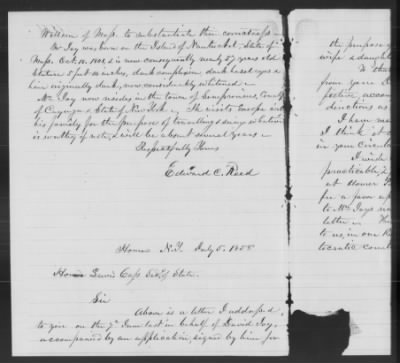 William of Mass. to substantiate their correctness.
Mr Jay was born on the Island of Nantucket, State of
Mass. Oct. 10. 1801, & is now consequently nearly 57 years old
Stature 5 feet 10 inches, dark complexion, dark hazel eyes &
hair originally dark, now considerably whitened.
Mr. Jay now resides in the town of Sempronius, County
of Cayuga & State of New York. He visits Europe with
his family for the purpose of travelling & doing whatever
is worthy of note, & will be absent several years.
Respectfully Yours
Edward C. Reed
Homer N.Y. July 5. 1858
Hon. Lewis Cass Sec. of State.
Sir
Above is a letter I addressed
to you on the 7th June last in behalf of David Jay,
accompanied by an application, signed by him for
the purpose o
wife & daughte
from your
I have
I think
in your Circul
I wish
practicable,
at Homer
for a favor
to Mr. Jays
letter.
to us, in our